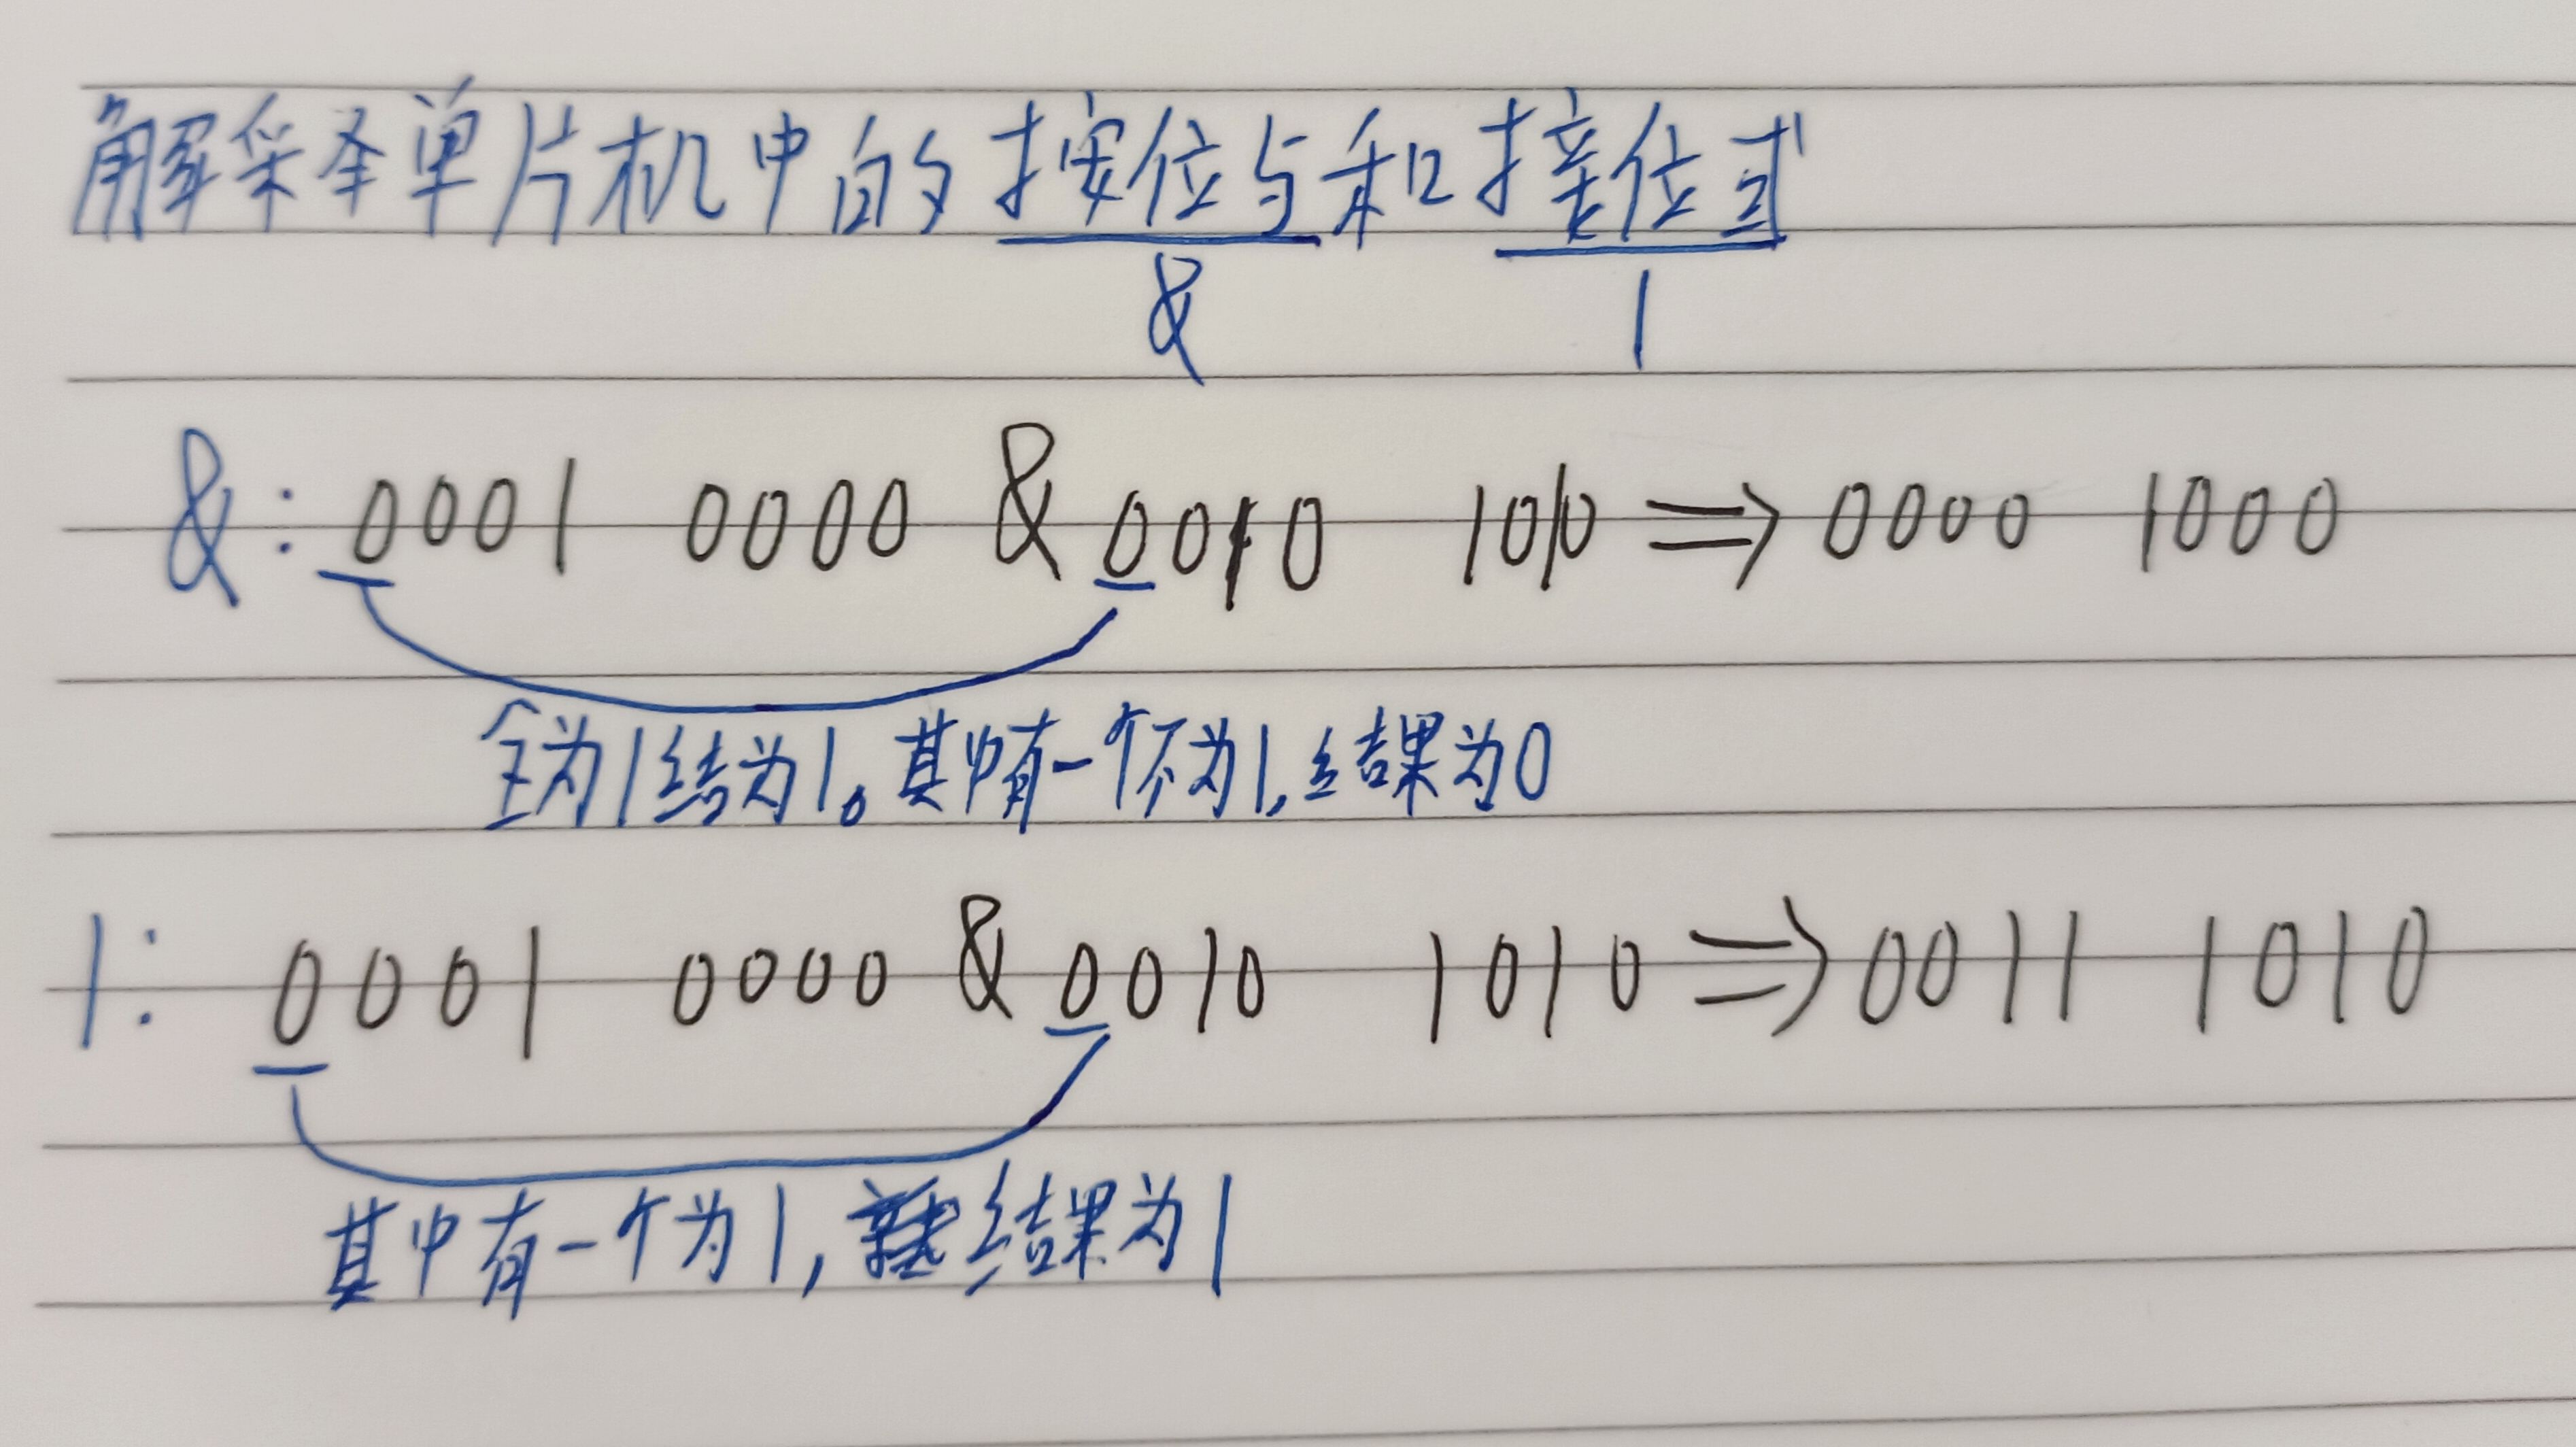 解释单片机中的按位与和按位或
& |
&: 0001 0000 & 0010 1010 => 0000 1000
全为1结为1。其中有一个不为1,结果为0
|: 0001 0000 & 0010 1010 => 0011 1010
其中有一个为1, 结果为1